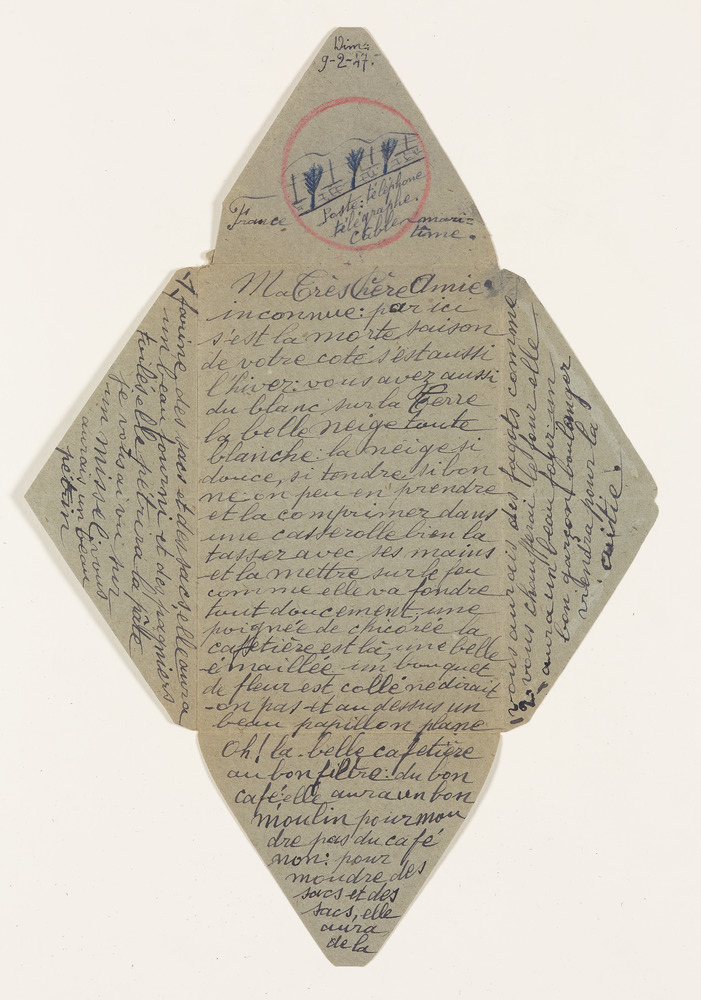 Dim:
9-2-47.
France
Poste: téléphone
télégraphe.
Cablen mari=
time.
Ma Très Chère Amie
inconnue: par ici
s'est la morte saison
de votre coté s'est aussi
l'hiver: vous avez aussi
du blanc sur la Terre
la belle neige toute
blanche: la neige si
douce, si tendre, si bon
ne on peu en prendre
et la comprimer dans
une casserolle bien la
tasser avec ses mains
et la mettre sur le feu
comme elle va fondre
tout doucement, une
poignée de chicorée la
caffetière est là, une belle
émaillée un bouquet
de fleur est collé ne dirait
-on pas-et au dessus un
beau papillon plane
Oh! la-belle cafetière
au bon filtre: du bon
café: elle aura un bon
moulin pour mou
dre pas du café
non: pour
moudre des
sacs et des
sacs, elle
aura
de la
1) farine, des sacs et des sacs, elle aura
un beau fourni et des pagniers
toiles elle pétrira la pâte
je vous aiver par
un missel vous
aurais un beau
pétrin
vous aurais des fagots comme
2 vous chaufferai le four elle
aura un beau four un
bon garçon boulanger
viendra pour la
cuitié.